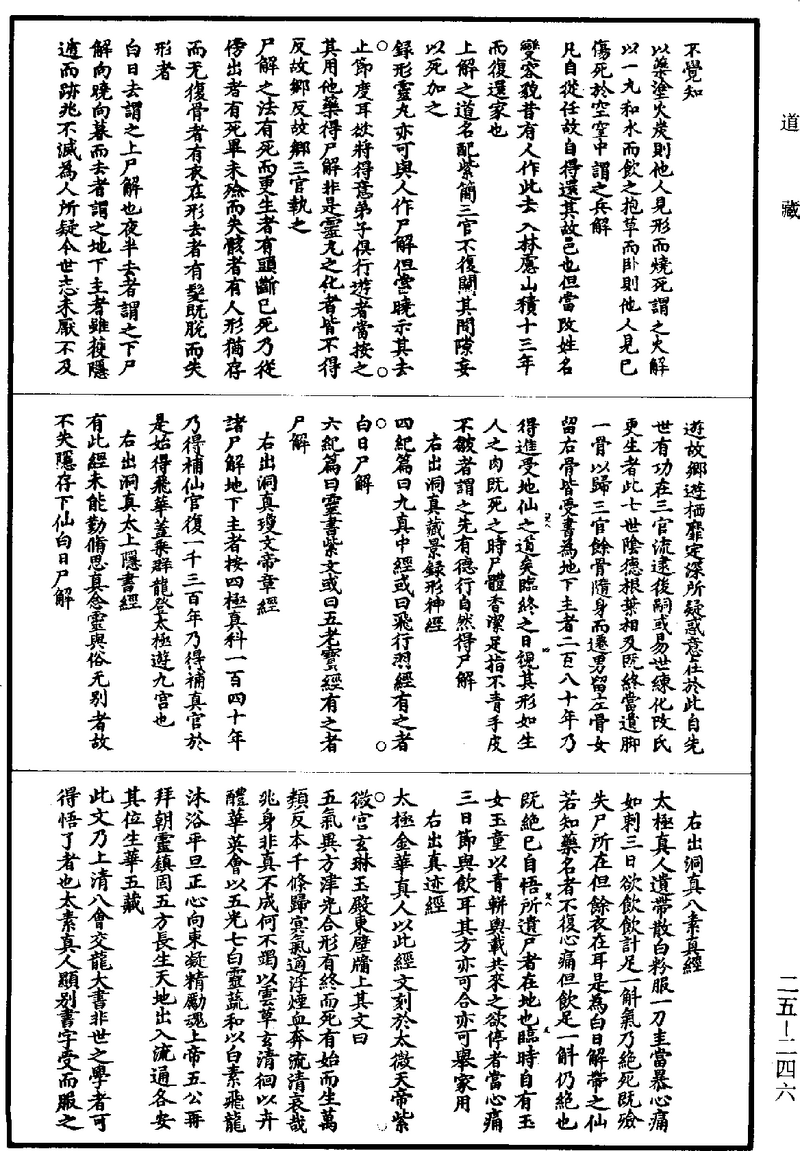 道藏
不覺知
以藥塗火炭則他人見形而燒死謂之火解
以一丸和水而飲之抱草而卧則他人見已
傷死於空室中謂之兵解
凡自從任故自得還其故邑也但當改姓名
變容貌昔有人作此去入林慮山積十三年
而復還家也
上解之道名配紫簡三官不復關其間隙妄
以死加之
録形靈丸亦可與人作尸解但當曉示其去
止節度耳欲將得意弟子俱行遊者當按之
其用他藥得尸解非是靈丸之化者皆不得
反故鄉反故鄉三官執之
尸解之法有死而更生者有頭斷已死乃從
傍出者有死畢未殮而失骸者有人形猶存
而无復骨者有衣在形去者有髮既脫而失
形者
白日去謂之上尸解也夜半去者謂之下尸
解向曉向暮而去者謂之地下主者雖獲隱
遁而跡兆不滅為人所疑今世志未厭不及
遊故鄉遊栖靡定深所疑惑意在於此自先
世有功在三官流逮後嗣或易世練化改氏
更生者此七世陰德根葉相及既終當遺脚
一骨以歸三官餘骨隨身而遷男留左骨女
留右骨皆受書為地下主者二百八十年乃
得進受地仙之道矣臨終之日視其形如生
人之肉既死之時尸體香潔足指不青手皮
不皺者謂之先有德行自然得尸解
右出洞真藏景録形神經
四紀篇曰九真中經或曰飛行羽經有之者
白日尸解
六紀篇曰靈書紫文或曰五老寳經有之者
尸解
右出洞真瓊文帝章經
諸尸解地下主者按四極真科一百四十年
乃得補仙官復一千三百年乃得補真官於
是始得飛華蓋乘群龍登太極遊九宮也
右出洞真太上隱書經
有此經未能勤脩思真念靈與俗无别者故
不失隱存下仙白日尸解
右出洞真八素真經
太極真人遺帶散白粉服一刀圭當暴心痛
如刺三日欲飲飲計足一斛氣乃絕死既殮
失尸所在但餘衣在耳是為白日解帶之仙
若知藥名者不復心痛但飲足一斛仍絕也
既絕已自悟所遺尸者在地也臨時自有玉
女玉童以青軿輿載共來之欲停者當心痛
三日節與飲耳其方亦可合亦可舉家用
右出真迹經
太極金華真人以此經文刻於太微天帝紫
微宮玄琳玉殿東壁牖上其文曰
五氣異方津光合形有終而死有始而生萬
類反本千條歸冥氣適浮煙血奔流清哀哉
兆身非真不成何不竭以雲草玄清徊以卉
醴華英會以五光七白靈蔬和以白素飛龍
沐浴平旦正心向東凝精勵魂上帝五公再
拜朝靈鎮固五方長生天地出入流通各安
其位生華五藏
此文乃上清八會交龍大書非世之學者可
得悟了者也太素真人顯别書字受而服之
二五-二四六